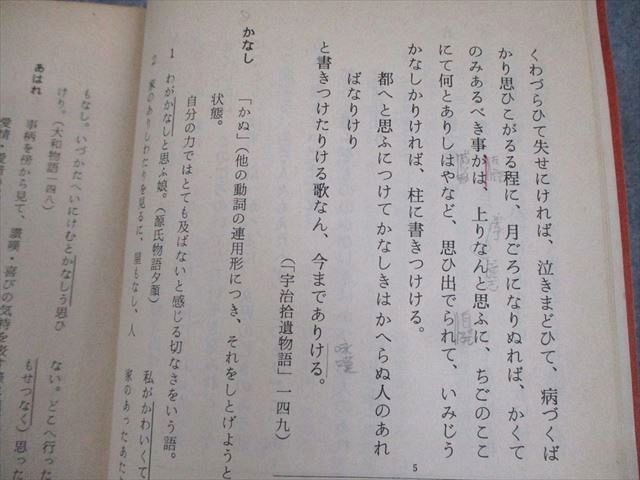 くわづらひて失せにければ、泣きまどひて、病づくば
かり思ひこがるる程に、月ごろになりぬれば、かくて
のみあるべき事かは、上りなんと思ふに、ちごのここ
にて何とありしはやなど、思ひ出でられて、いみじう
かなしかりければ、柱に書きつけける。
都へと思ふにつけてかなしきはかへらぬ人のあれ
ばなりけり
と書きつけたりける歌なん、今までありける。
(「宇治拾遺物語」一四九)
かなし
「かぬ」(他の動詞の連用形につき、それをしとげようと
状態。
自分の力ではとても及ばないと感じる切なさをいう語。
1 わがかなしと思ふ娘。(源氏物語夕顔)
私がかわいくて
2 家のありしわたりを見るに、屋もなし、人
家のあったあた
もなし。いづかたへいにけむとかなしう思ひ
けり。(大和物語一四八)
ない。どこへ行った
もせつなく)思った
あはれ
事柄を傍から見て、讃嘆・喜びの気持を表
5